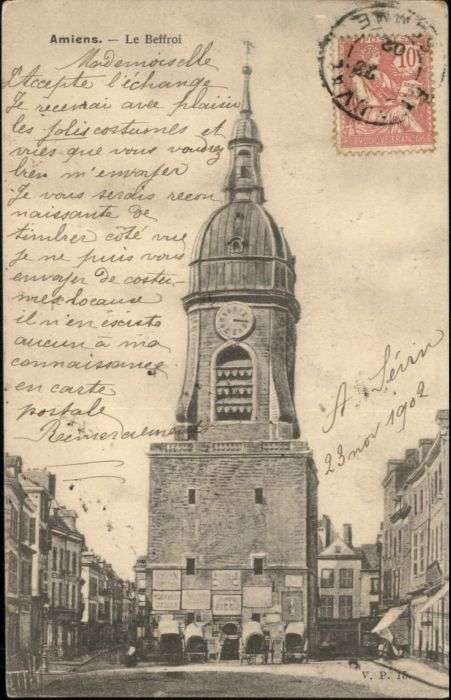 Amiens. — Le Beffroi
Mademoiselle
J'Accepte l'échange
Je recevrai avec plaisir
les jolis costumes et
vues que vous voudrez
bien m'envoyer
Je vous serais recon
naissante de
timbrer côté vue
Je ne puis vous
envoyer de costu-
mes locaux
il n'en éxiste
aucun à ma
connaissance
en carte
postale
Remerciements
A. Sévin
23 nov 1902
10
02
V. P. 18.